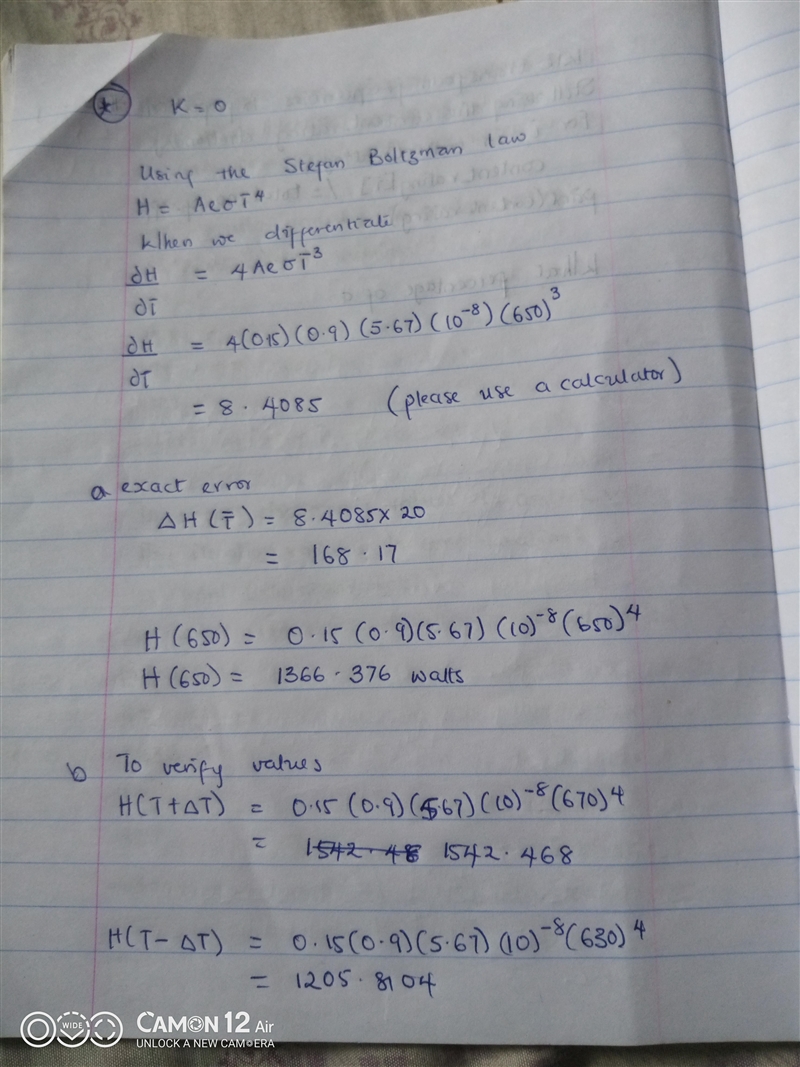 * K = 0
Using the Stefan Boltzman law
H = AeσT⁴
When we differentiate
∂H/∂T = 4AeσT̄³
∂H/∂T = 4(0.15)(0.9)(5.67)(10⁻⁸)(650)³
= 8.4085 (please use a calculator)
a exact error
ΔH(T̄) = 8.4085 x 20
= 168.17
H(650) = 0.15(0.9)(5.67)(10)⁻⁸(650)⁴
H(650) = 1366.376 watts
b To verify values
H(T+ΔT) = 0.15(0.9)(5.67)(10)⁻⁸(670)⁴
= 1542.48 1542.468
H(T-ΔT) = 0.15(0.9)(5.67)(10)⁻⁸(630)⁴
= 1205.8104
WIDE CAMON 12 Air
UNLOCK A NEW CAMERA